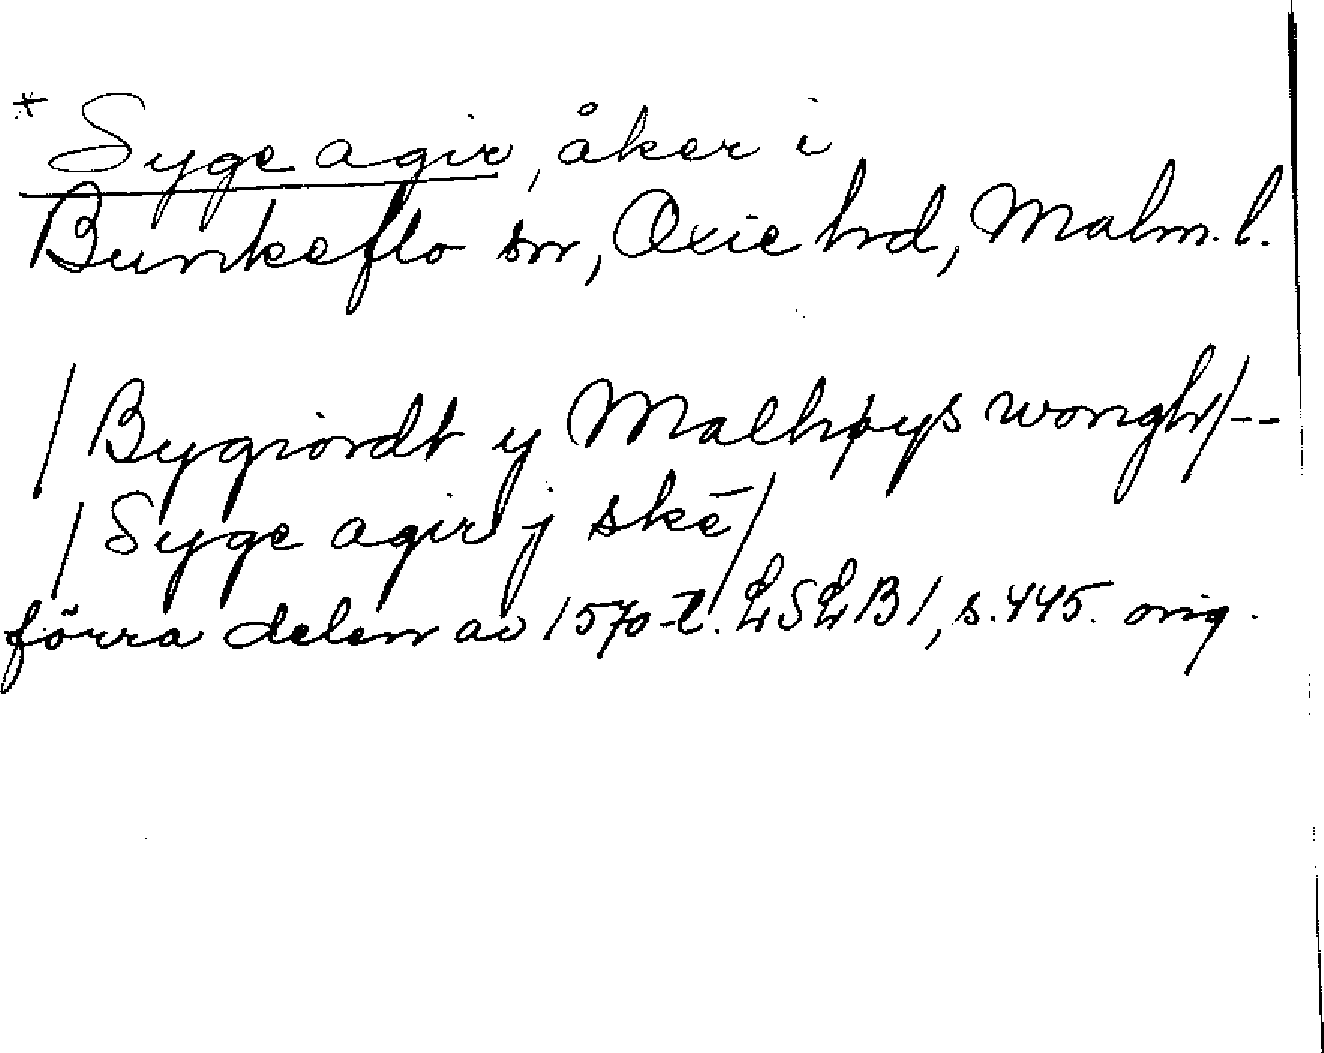 * Syge agir, åker i
Bunkeflo sn, Oxie hd, Malm. l.
/ Bygiordt y Malhøys wongh / --
/ Syge agir j skē /
förra delen av 1570-t. LSLB 1, s. 445. orig.